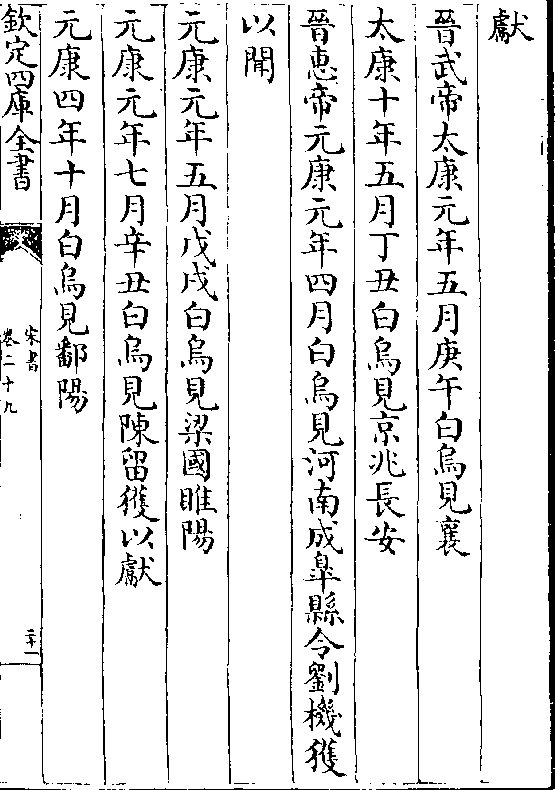 獻
晉武帝太康元年五月庚午白烏見襄
太康十年五月丁丑白烏見京兆長安
晉惠帝元康元年四月白烏見河南成皐縣令劉機獲
以聞
元康元年五月戊戌白烏見梁國睢陽
元康元年七月辛丑白烏見陳留獲以獻
元康四年十月白烏見鄱陽
欽定四庫全書
宋書
卷二十九
二十一